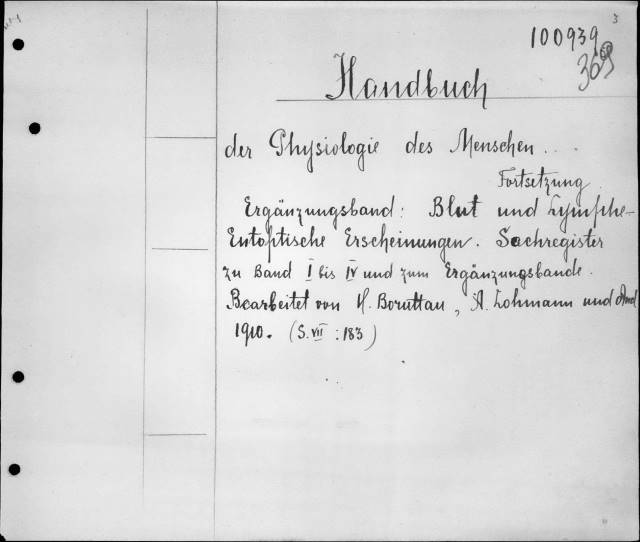 3
100939
369
Handbuch
der Physiologie des Menschen ...
Fortsetzung
Ergänzungsband: Blut und Lymphe-
Entoptische Erscheinungen. Sachregister
zu Band I bis IV und zum Ergänzungsbande.
Bearbeitet von H. Boruttau, A. Lohmann und And
1910. (S. VII : 183)